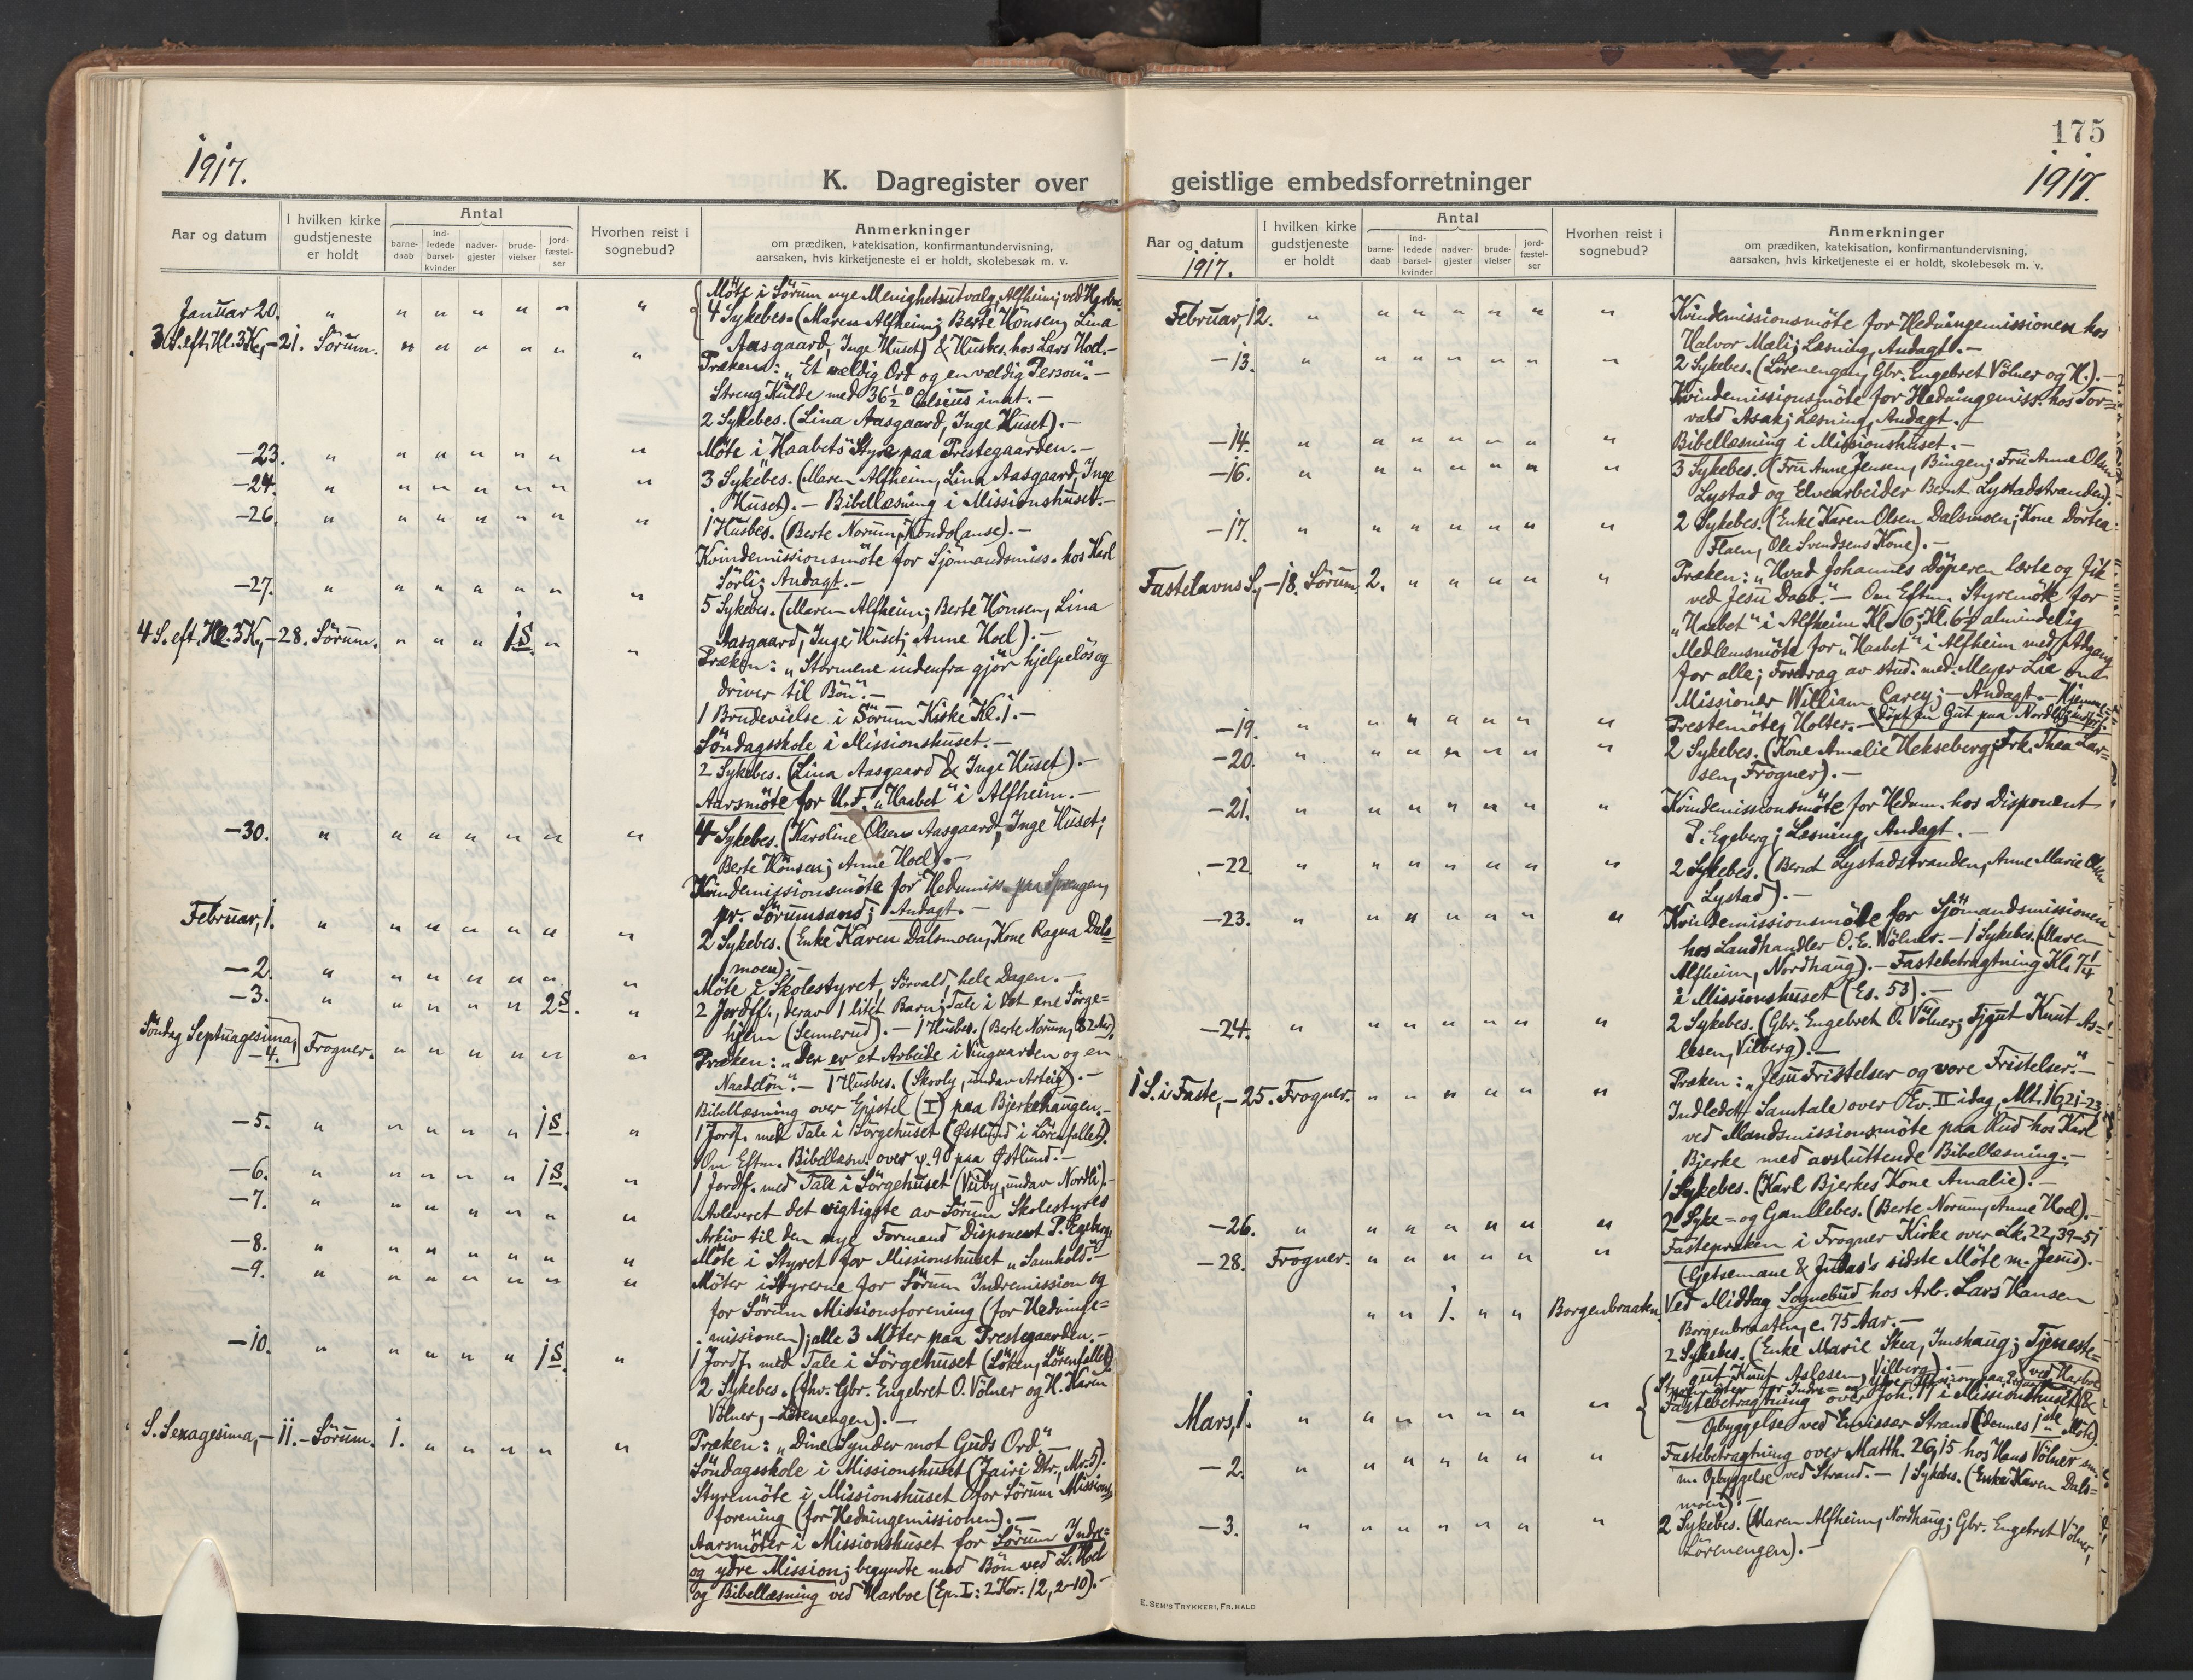 1917.
K. Dagregister over
Aar og datum
I hvilken kirke gudstjeneste er holdt
Antal
barne-daab
ind-ledede barsel-kvinder
nadver-gjester
brude-vielser
jord-fæstel-ser
Hvorhen reist i sognebud?
Anmerkninger
om prædiken, katekisation, konfirmantundervisning,
aarsaken, hvis kirketjeneste ei er holdt, skolebesøk m. v.
Januar 20. " " " " " " "
Möte i Sörum nye Menighetsutvalg, Alfheim; ved
4 Sykebes. (Maren Alfheim; Berte Hönsen, Lina
Aasgaard, Inge Huset) & Husbes. hos Lars Hoel.-
3 S. eft. Hl. 3 K., - 21. Sörum. " " " " " "
Præken: "Et vældig Ord og en vældig Person".-
Streng Kulde med 36½° Celsius inat.-
2 Sykebes. (Lina Aasgaard, Inge Huset).-
-23. " " " " " " "
Möte i "Haabets" Styre paa Prestegaarden.-
-24. " " " " " " "
3 Sykebes. (Maren Alfheim, Lina Aasgaard, Inge
Huset).- Bibellæsning i Missionshuset.-
-26. " " " " " " "
1 Husbes. (Berte Norum, Kondolanse).-
Kvindemissionsmöte for Sjömandsmiss. hos Karl
Sörli; Andagt.-
-27. " " " " " " "
5 Sykebes. (Maren Alfheim; Berte Hönsen, Lina
Aasgaard, Inge Huset; Anne Hoel).-
4 S. eft. Hl. 3 K., - 28. Sörum. " " " 1 S. " "
Præken: "Stormene indenfra gjör hjelpelös og
driver til Bön".-
1 Brudevielse i Sörum Kirke Kl. 1.-
Söndagsskole i Missionshuset.-
2 Sykebes. (Lina Aasgaard & Inge Huset).-
Aarsmöte for U.F. "Haabet" i Alfheim.-
-30. " " " " " " "
4 Sykebes. (Karoline Olsen Aasgaard, Inge Huset;
Berte Hönsen; Anne Hoel).-
Kvindemissionsmöte for Hedmmiss. paa Sprengen,
pr. Sörumsand; Andagt.-
Februar, 1. " " " " " " "
2 Sykebes. (Enke Karen Dalsmoen, Kone Ragna Dals=
moen).-
-2. " " " " " " "
Möte i Skolestyret, Sörvald, hele Dagen.-
-3. " " " " " 2 S. "
2 Jordf., derav 1 litet Barn; Tale i det ene Sörge=
hjem (Sennerud).- 1 Husbes. (Berte Norum, 82 Aar).
Söndag Septuagesima, -4. Frogner. " " " " " "
Præken: "Der er et Arbeide i Vingaarden og en
Naadelön".- 1 Husbes. (Skovly, undav Arteig).-
Bibellæsning over Epistel (I) paa Bjerkehaugen.-
-5. " " " " " 1 S. "
1 Jordf. med Tale i Sörgehuset (Østlund i Lörenfallet).
Om Eftm. Bibellæsn. over ψ. 90 paa Østlund.-
-6. " " " " " 1 S. "
1 Jordf. med Tale i Sörgehuset (Viiby, undav Nordli).-
-7. " " " " " " "
Avleveret det vigtigste av Sörum Skolestyres
Arkiv til den nye Formand Disponent P. Egeberg.
-8. " " " " " " "
Möte i Styret for Missionshuset "Samhold".-
-9. " " " " " " "
Möter i Styrerne for Sörum Indremission og
for Sörum Missionsforening (for Hedninge=
missionen); alle 3 Möter paa Prestegaarden.-
-10. " " " " " 1 S. "
1 Jordf. med Tale i Sörgehuset (Löken, Lörenfallet).
2 Sykebes. (fhv. Gbr. Engebret O. Völner og H. Karen
Völner, - Lörenengen).-
S. Sexagesima, - 11. - Sörum. 1. " " " " "
Præken: "Dine Synder mot Guds Ord".-
Söndagsskole i Missionshuset (Jairi Dtr., Mr. 5).
Styremöte i Missionshuset for Sörum Missions
forening (for Hedningemissionen).-
Aarsmöter i Missionshuset for Sörum Indre=
og ydre Mission; begyndte med Bön ved L. Hoel
og Bibellæsning ved Harboe (Ep. I: 2 Kor. 12, 2-10).-
175
1917.
geistlige embedsforretninger
Aar og datum
1917.
I hvilken kirke gudstjeneste er holdt
Antal
barne-daab
ind-ledede barsel-kvinder
nadver-gjester
brude-vielser
jord-fæstel-ser
Hvorhen reist i sognebud?
Anmerkninger
om prædiken, katekisation, konfirmantundervisning,
aarsaken, hvis kirketjeneste ei er holdt, skolebesøk m. v.
Februar, 12. " " " " " " "
Kvindemissionsmöte for Hedningemissionen hos
Halvor Mæli; Læsning, Andagt.-
-13. " " " " " " "
2 Sykebes. (Lörenengen, Gbr. Engebret Völner og H.).-
Kvindemissionsmöte for Hedningemiss. hos Tor=
vald Asak; Læsning, Andagt.-
-14. " " " " " " "
Bibellæsning i Missionshuset.-
-16. " " " " " " "
3 Sykebes. (Fru Anne Jensen, Bingen; Fru Anne Olsen
Lystad og Elvearbeider Bernt Lystadstranden).
-17. " " " " " " "
2 Sykebes. (Enke Karen Olsen Dalsmoen; Kone Dortea
Flaen, Ole Svendsens Kone).-
Fastelavns S., - 18. Sörum. 2. " " " " "
Præken: "Hvad Johannes Döperen lærte og fik
ved Jesu Daab".- Om Eftm. Styremöte for
"Haabet" i Alfheim Kl. 6; Kl. 6½ almindelig
Medlemsmöte for "Haabet" i Alfheim med Adgang
for alle; Foredrag av stud. med. Meyer Lie om
Missionær William Carey; - Andagt.- Hjemme=
-19. " " " " " " "
Prestemöte, Holter.- döpt en Gut paa Nordli,
-20. " " " " " " "
2 Sykebes. (Kone Amalie Hekseberg; Frk. Thea Lar=
sen, Frogner).-
-21. " " " " " " "
Kvindemissionsmöte for Hedn. hos Disponent
P. Egeberg; Læsning, Andagt.-
-22. " " " " " " "
2 Sykebes. (Bernt Lystadstranden, Anne Marie Olsen
Lystad).-
-23. " " " " " " "
Kvindemissionsmöte for Sjömandsmissionen
hos Landhandler O. E. Völner.- 1 Sykebes. (Maren
Alfheim, Nordhaug).- Fastebetragtning Kl. 7¼
i Missionshuset (Es. 53).-
-24. " " " " " " "
2 Sykebes. (Gbr. Engebret O. Völner; Tjgut Knut As=
lesen, Vilberg).-
1 S. i Faste, - 25. Frogner. " " " " " "
Præken: "Jesu Fristelser og vore Fristelser".-
Indledet Samtale over Ev. II idag, Mt. 16, 21-23
ved Mandsmissionsmöte paa Rud hos Karl
Bjerke med avsluttende Bibellæsning.-
1 Sykebes. (Karl Bjerkes Kone Amalie).-
-26. " " " " " " "
2 Syke= og Gamlebes. (Berte Norum, Anne Hoel).-
-28. Frogner. " " " " " "
Fastepræken i Frogner Kirke over Lk. 22, 39-51
(Getsemane & Judas's sidste Möte m. Jesus).-
" " 1. " " Borgenbraaten.
Ved Middag Sognebud hos Arb. Lars Hansen
Borgenbraaten, c. 75 Aar.-
2 Sykebes. (Enke Marie Skea, Imshaug; Tjeneste=
gut Knut Aslesen, Vilberg).-
Mars, 1. " " " " " " "
Fastebetragtning over Joh. 17 i Missionshuset &
Opbyggelse ved Emissær Strand (dennes 1ste Möte).
-2. " " " " " " "
Fastebetragtning over Matth. 26, 15 hos Hans Völner
m. Opbyggelse ved Strand.- 1 Sykebes. (Enke Karen Dals=
moen).-
-3. " " " " " " "
2 Sykebes. (Maren Alfheim, Nordhaug; Gbr. Engebret Völner,
Lörenengen).-
E. SEM'S TRYKKERI, FR.HALD